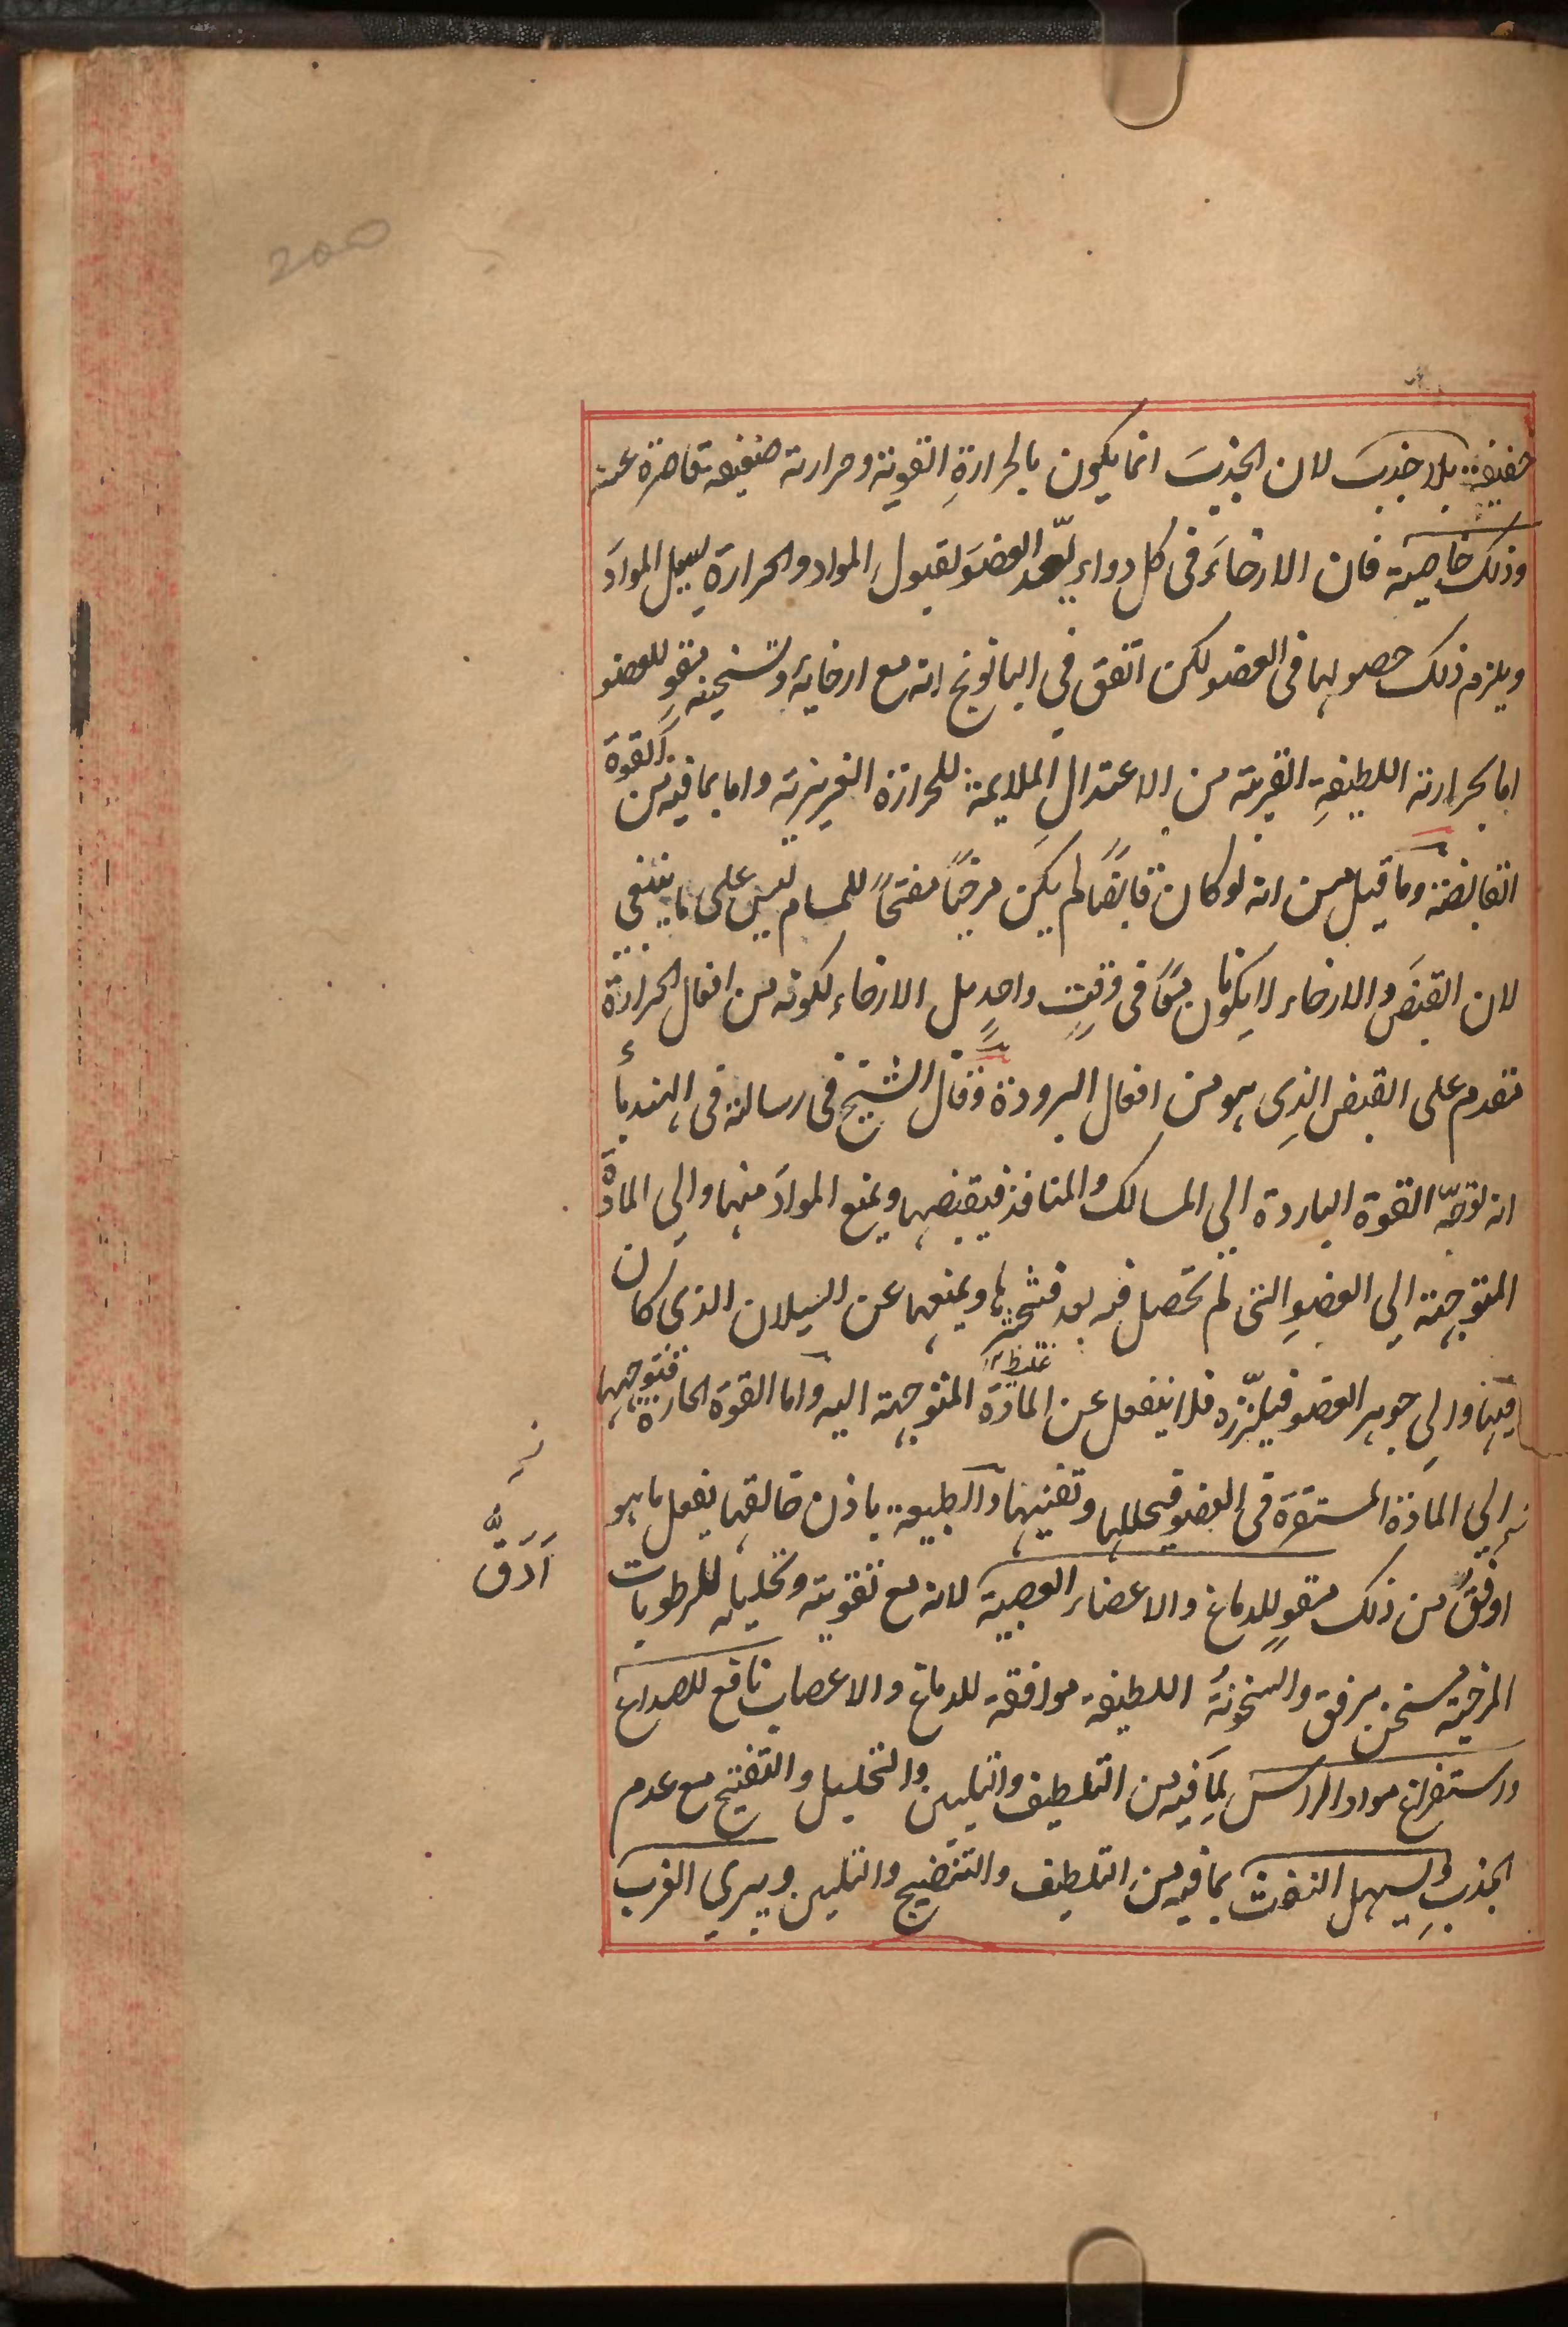 200
خفيفة بلا جذب لان الجذبَ انما يكون بالحرارةِ القوية وحرارته ضعيفة قاصرة عنه
وذلك خاصية فان الارخاءَ فى كل دواء يعد العضوَ لقبولِ المواد والحرارة يسيل الموادَ
ويلزم ذلك حصولها فى العضو لكن اتفق فى البابونج انه مع ارخايه وتسخينه مقوٍ للعضو
اما بحرارته اللطيفةِ القريبة من الاعتدال الملايمة للحرارة الغريزية واما بما فيه من القوة
القابضة وما قيل من انه لو كان قابضًا لم يكن مرخيًا مفتحًا للمسام ليس على ما ينبغى
لان القبضَ والارخاء لا يكونان معًا فى وقتٍ واحدٍ بل الارخاء لكونه من افعال الحرارة
تقدم على القبض الذى هو من افعال البرودة وقال الشيخ فى رسالته فى الهندبأ
انه توجّه القوة الباردة الى المسالك والمنافذ فيقبضها ويمنع الموادَ منها والى المادّة
المتوجهة الى العضوِ التى لم تحصل فيه بعد فتخثرها ويمنعها عن السيلان الذى كان
فيها والى جوهر العضو فيلزّزه فلا ينفعل عن المادّة المتوجهة اليه واما القوة الحارة فتوجهها
غلظ
الى المادّة المستقرّة فى العضو فيحللها وتفنيها والطبيعة باذن خالقها يفعل ما هو
اوفقُ من ذلك مقوٍ للدماغ والاعضاء العصبية لانه مع تقويته وتحليله للرطوبات
اَدَقُّ
المرخية مسخن برفق والسخونةُ اللطيفة موافقة للدماغ والاعصاب نافع للصداع
واستفراغ مواد الراس لِمَا فيه من التلطيف والتليين والتحليل والتفتيح مع عدم
الجذبِ ويسهل النفث بما فيه من التلطيف والتنضيج والتليين ويبرى الغرب